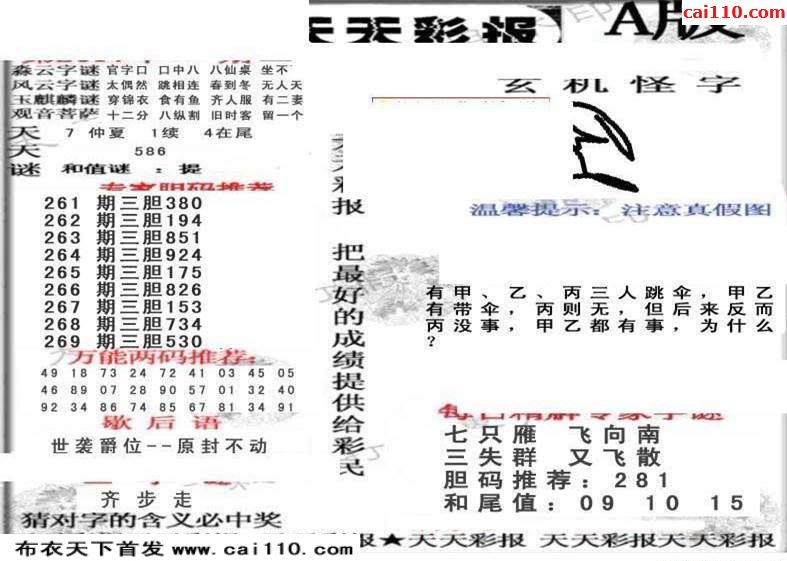 cai110.com
天天彩报 A版
森云字谜 官字口 口中八 八仙桌 坐不
风云字谜 太偶然 跳相连 春到冬 无人天
玉麒麟谜 穿锦衣 食有鱼 齐人服 有二妻
观音菩萨 十二分 八纵割 旧时客 留一个
天 7 仲夏 1续 4在尾
天 586
谜 和值谜 : 提
专家胆码推荐
261 期三胆380
262 期三胆194
263 期三胆851
264 期三胆924
265 期三胆175
266 期三胆826
267 期三胆153
268 期三胆734
269 期三胆530
万能两码推荐:
49 18 73 24 72 41 03 45 05
46 89 07 28 90 57 01 32 40
92 34 86 74 85 67 81 34 91
歇后语
世袭爵位--原封不动
齐步走
猜对字的含义必中奖
布衣天下首发 www.cai110.com
报 把最好的成绩提供给彩民
玄机怪字
温馨提示: 注意真假图
有甲、乙、丙三人跳伞，甲乙
有带伞，丙则无，但后来反而
丙没事，甲乙都有事，为什么
?
每日精解专家字谜
七只雁 飞向南
三失群 又飞散
胆码推荐: 281
和尾值: 09 10 15
报★天天彩报 天天彩报天天彩报